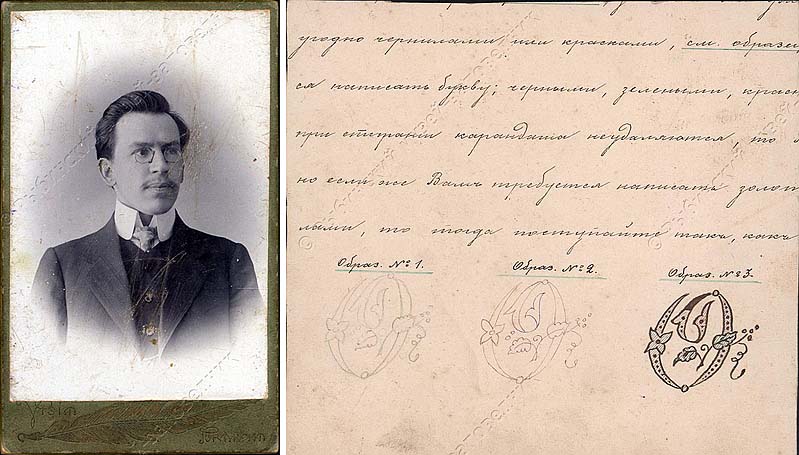 угодно чернилами или красками, см. образ
ся написать букву; черными, зелеными, крас
при стирании карандаша неудаляются, то
но если же Вамъ требуется написать золот
лами, то тогда поступайте такъ, какъ
Образ. №1.
Образ. №2.
Образ. №3.